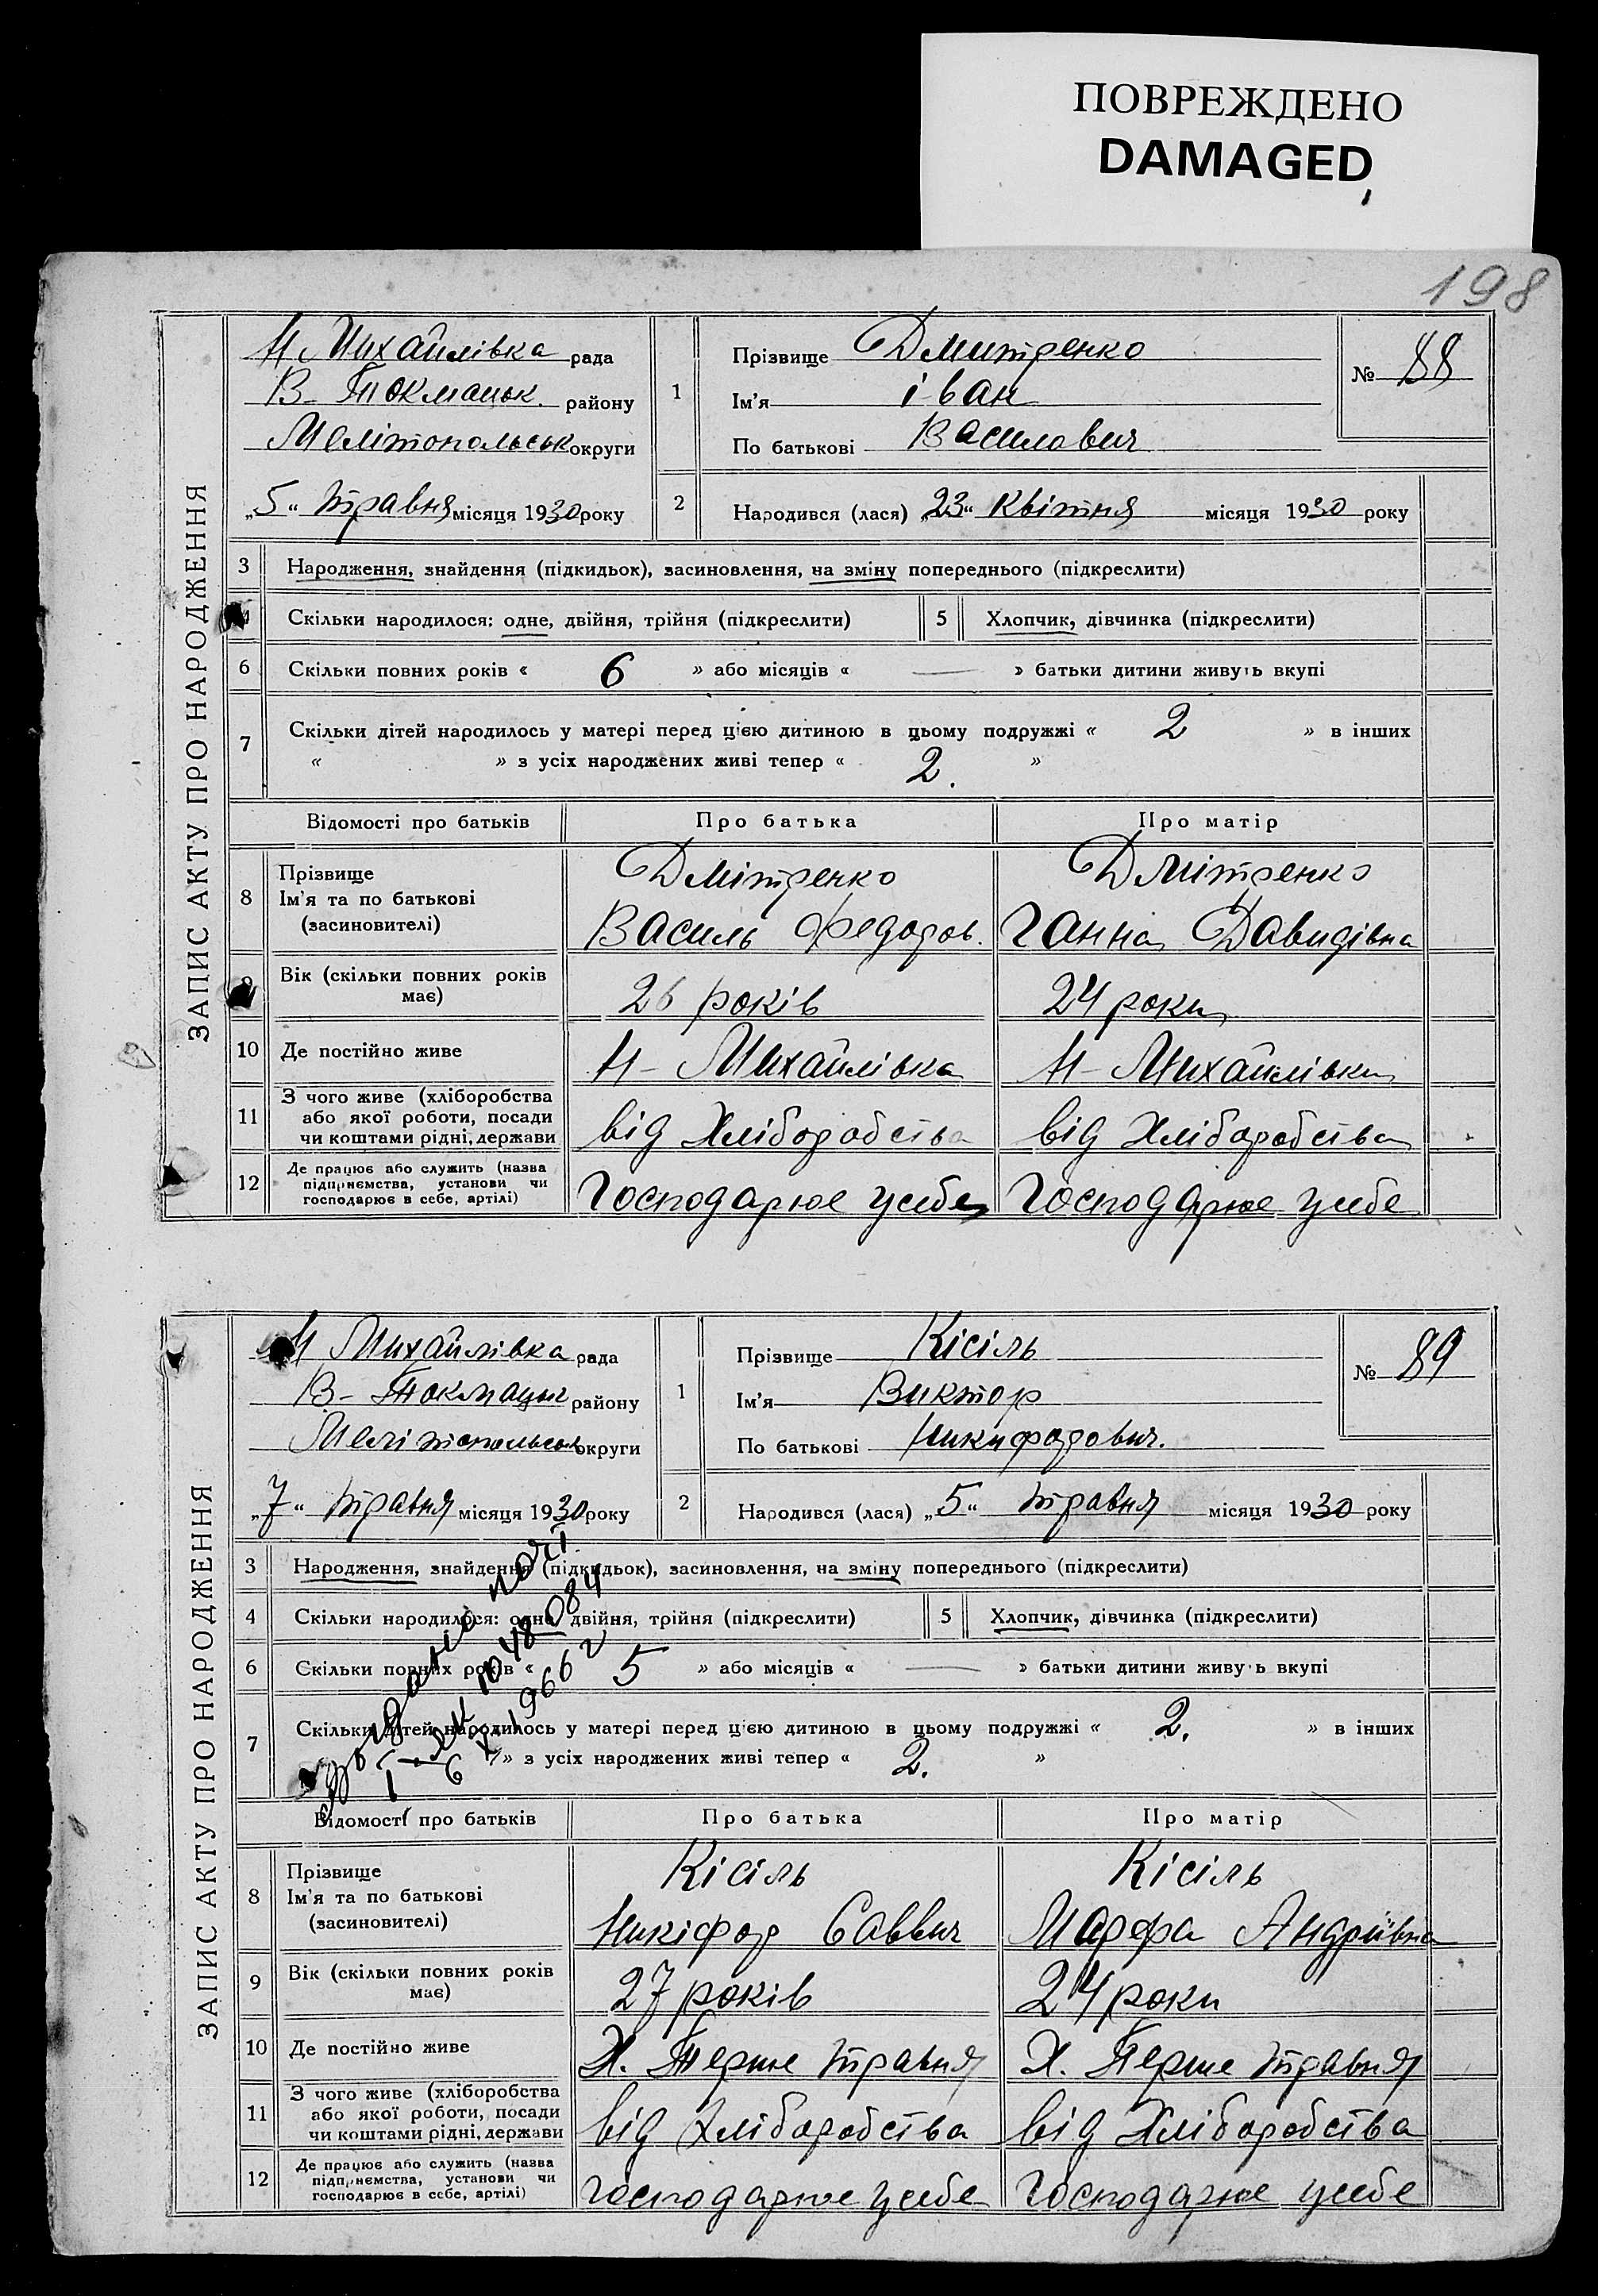 ПОВРЕЖДЕНО
DAMAGED
198
ЗАПИС АКТУ ПРО НАРОДЖЕННЯ
Н Михайлівка рада
В-Токмацьк району
Мелітопольськ округи
„5“ травня місяця 1930 року
1
Прізвище Дмитренко
Ім'я іван
По батькові Василович
№ 88
2
Народився (лася) „23“ Квітня місяця 1930 року
3 Народження, знайдення (підкидьок), засиновлення, на зміну попереднього (підкреслити)
4 Скільки народилося: одне, двійня, трійня (підкреслити) 5 Хлопчик, дівчинка (підкреслити)
6 Скільки повних років « 6 » або місяців « — » батьки дитини живуть вкупі
7 Скільки дітей народилось у матері перед цією дитиною в цьому подружжі « 2 » в інших
« » з усіх народжених живі тепер « 2. »
Відомості про батьків Про батька Про матір
8 Прізвище
Ім'я та по батькові
(засиновителі)
Дмітренко
Василь Федоров.
Дмітренко
Ганна Давидівна
9 Вік (скільки повних років
має)
26 років 24 роки
10 Де постійно живе Н-Михайлівка Н-Михайлівка
11 З чого живе (хліборобства
або якої роботи, посади
чи коштами рідні, держави
від Хліборобства від Хліборобства
12 Де працює або служить (назва
підприємства, установи чи
господарює в себе, артілі)
Господарює усебе Господарює усебе
ЗАПИС АКТУ ПРО НАРОДЖЕННЯ
Н Михайлівка рада
В-Токмацьк району
Мелітопольськ округи
„7“ травня місяця 1930 року
1
Прізвище Кісіль
Ім'я Виктор
По батькові Никифорович.
№ 89
2
Народився (лася) „5“ травня місяця 1930 року
3 Народження, знайдення (підкидьок), засиновлення, на зміну попереднього (підкреслити)
4 Скільки народилося: одне, двійня, трійня (підкреслити) 5 Хлопчик, дівчинка (підкреслити)
6 Скільки повних років « 5 » або місяців « — » батьки дитини живуть вкупі
7 Скільки дітей народилось у матері перед цією дитиною в цьому подружжі « 2. » в інших
» з усіх народжених живі тепер « 2. »
Відомості про батьків Про батька Про матір
8 Прізвище
Ім'я та по батькові
(засиновителі)
Кісіль
Никіфор Саввич
Кісіль
Марфа Андріївна
9 Вік (скільки повних років
має)
27 років 24 роки
10 Де постійно живе Х. Перше травня Х. Перше травня
11 З чого живе (хліборобства
або якої роботи, посади
чи коштами рідні, держави
від Хліборобства від Хліборобства
12 Де працює або служить (назва
підприємства, установи чи
господарює в себе, артілі)
Господарює усебе Господарює усебе